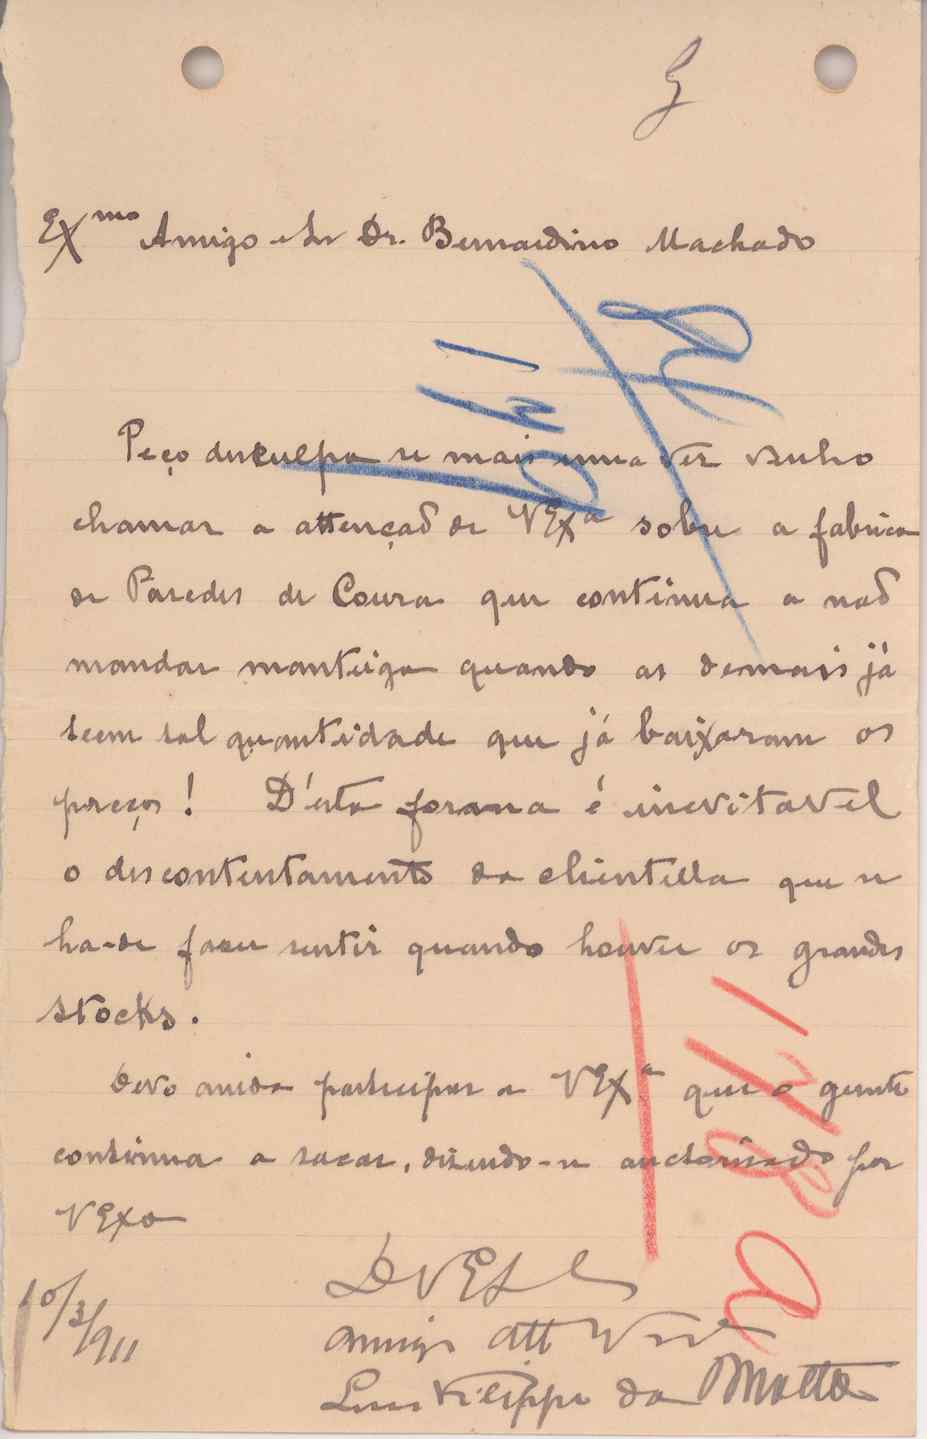 Exmo Amigo e Sr Dr. Bernardino Machado
Peço desculpa se mais uma vez venho
chamar a attenção de VExa sobre a fabrica
de Paredes de Coura que continua a não
mandar manteiga quando as demais já
teem tal quantidade que já baixaram os
preços! D'esta forma é inevitavel
o descontentamento da clientella que se
ha-de fazer sentir quando houver os grandes
stocks.
Devo ainda participar a VExa que o gerente
continua a sacar, dizendo-se auctorisado por
VExa
10/3/911
Amigo Att
Luis Filippe da Motta